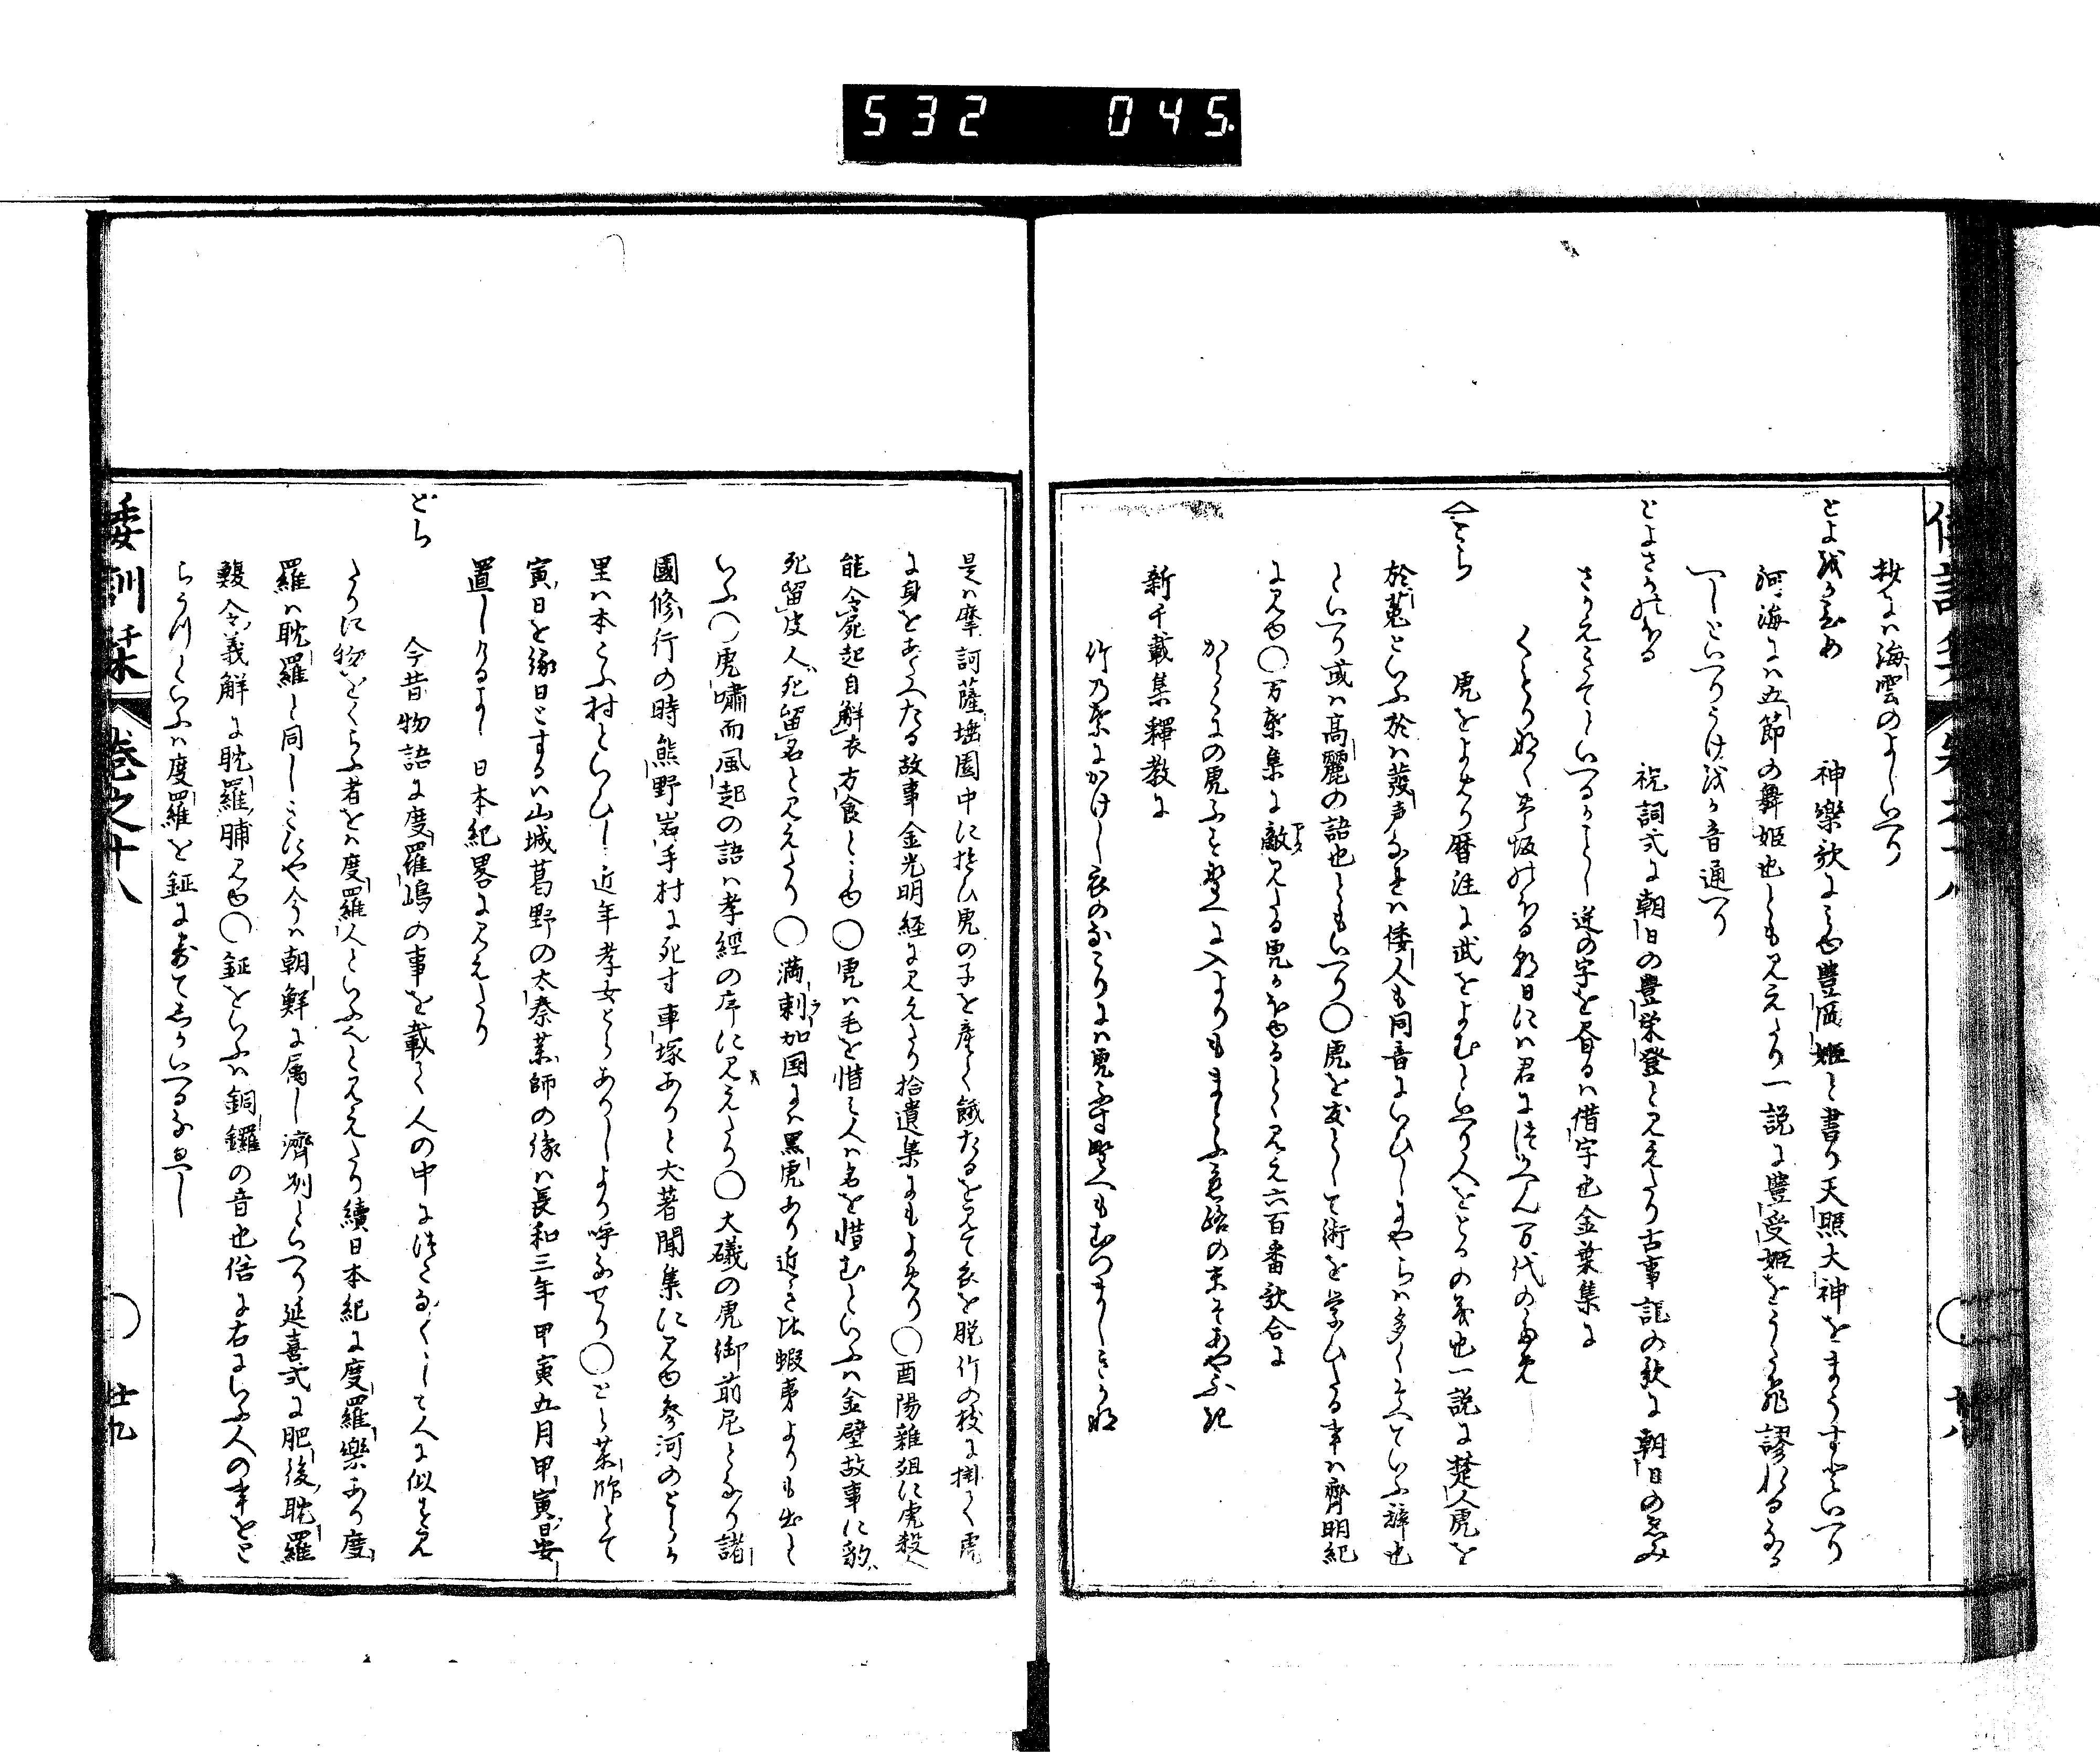 532 045.
抄には海雲のよしいへり
とよをかひめ 神樂歌にみゆ豊岡姫と書り天照大神をまうす也といへり
河海には五節の舞姫也とも見えたり一説に豊受姫をとようけ謬れるなる
へしといへりうけをか音通へり
とよさかのほる 祝詞式に朝日の豊栄登と見えたり古事記の歌に朝日のゑみ
さかえきてといへるかことし逆の字を書るは借字也金葉集に
くもりなくとよさかのほる朝日には君につかへん万代のため
とら 虎をよめり暦注に武をよむといへり人をとるの義也一説に楚人虎を
於菟といふ於は發声なれは倭人も同音にいひしにやらは多くそへていふ辞也
といへり或は高麗の語也ともいへり〇虎を友として術を学ひたる事は齊明紀
に見ゆ〇万葉集に敵見たる虎かほゆると見え六百番歌合に
からくにの虎ふす野へに入よりもまとふ恋路の末そあやふき
新千載集釋教に
竹乃葉にかけし衣のなこりには虎ふす野へもむつましきかな
是は摩訶薩埵園中に遊ひ虎の子を産て餓たるを見て衣を脱竹の枝に掛て虎
に身をあたへたる故事金光明経に見えたり拾遺集にもよめり〇酉陽雑俎に虎殺人
能令屍起自解衣方食とみゆ〇虎は毛を惜み人は名を惜むといふは金璧故事に豹
死留皮人死留名と見えたり〇満剌加国には黒虎あり近き比蝦夷よりも出と
いふ〇虎嘯而風起の語は孝經の序に見えたり〇大磯の虎御前尼となり諸
國修行の時熊野岩手村に死す車塚ありと犬著聞集に見ゆ參河のとらか
里は本こふ村といひし近年孝女とらありしより呼なせり〇とら薬師とて
寅日を縁日とするは山城葛野の太秦薬師の像は長和三年甲寅五月甲寅日安
置しけるよし日本紀畧に見えたり
どら 今昔物語に度羅嶋の事を載て人の中につとなくして人に似す見
たりに物をくらふ者をは度羅人といふへしと見えたり續日本紀に度羅樂あり度
羅は耽羅と同しことにや今は朝鮮に属し濟州といへり延喜式に肥後耽羅
鰒令義解に耽羅脯見ゆ〇鉦をいふは銅鑼の音也俗に右にいふ人の事をと
らうつといふは度羅を鉦に寄てしかいへるなるへし
倭訓栞 巻之十八 〇 廿九